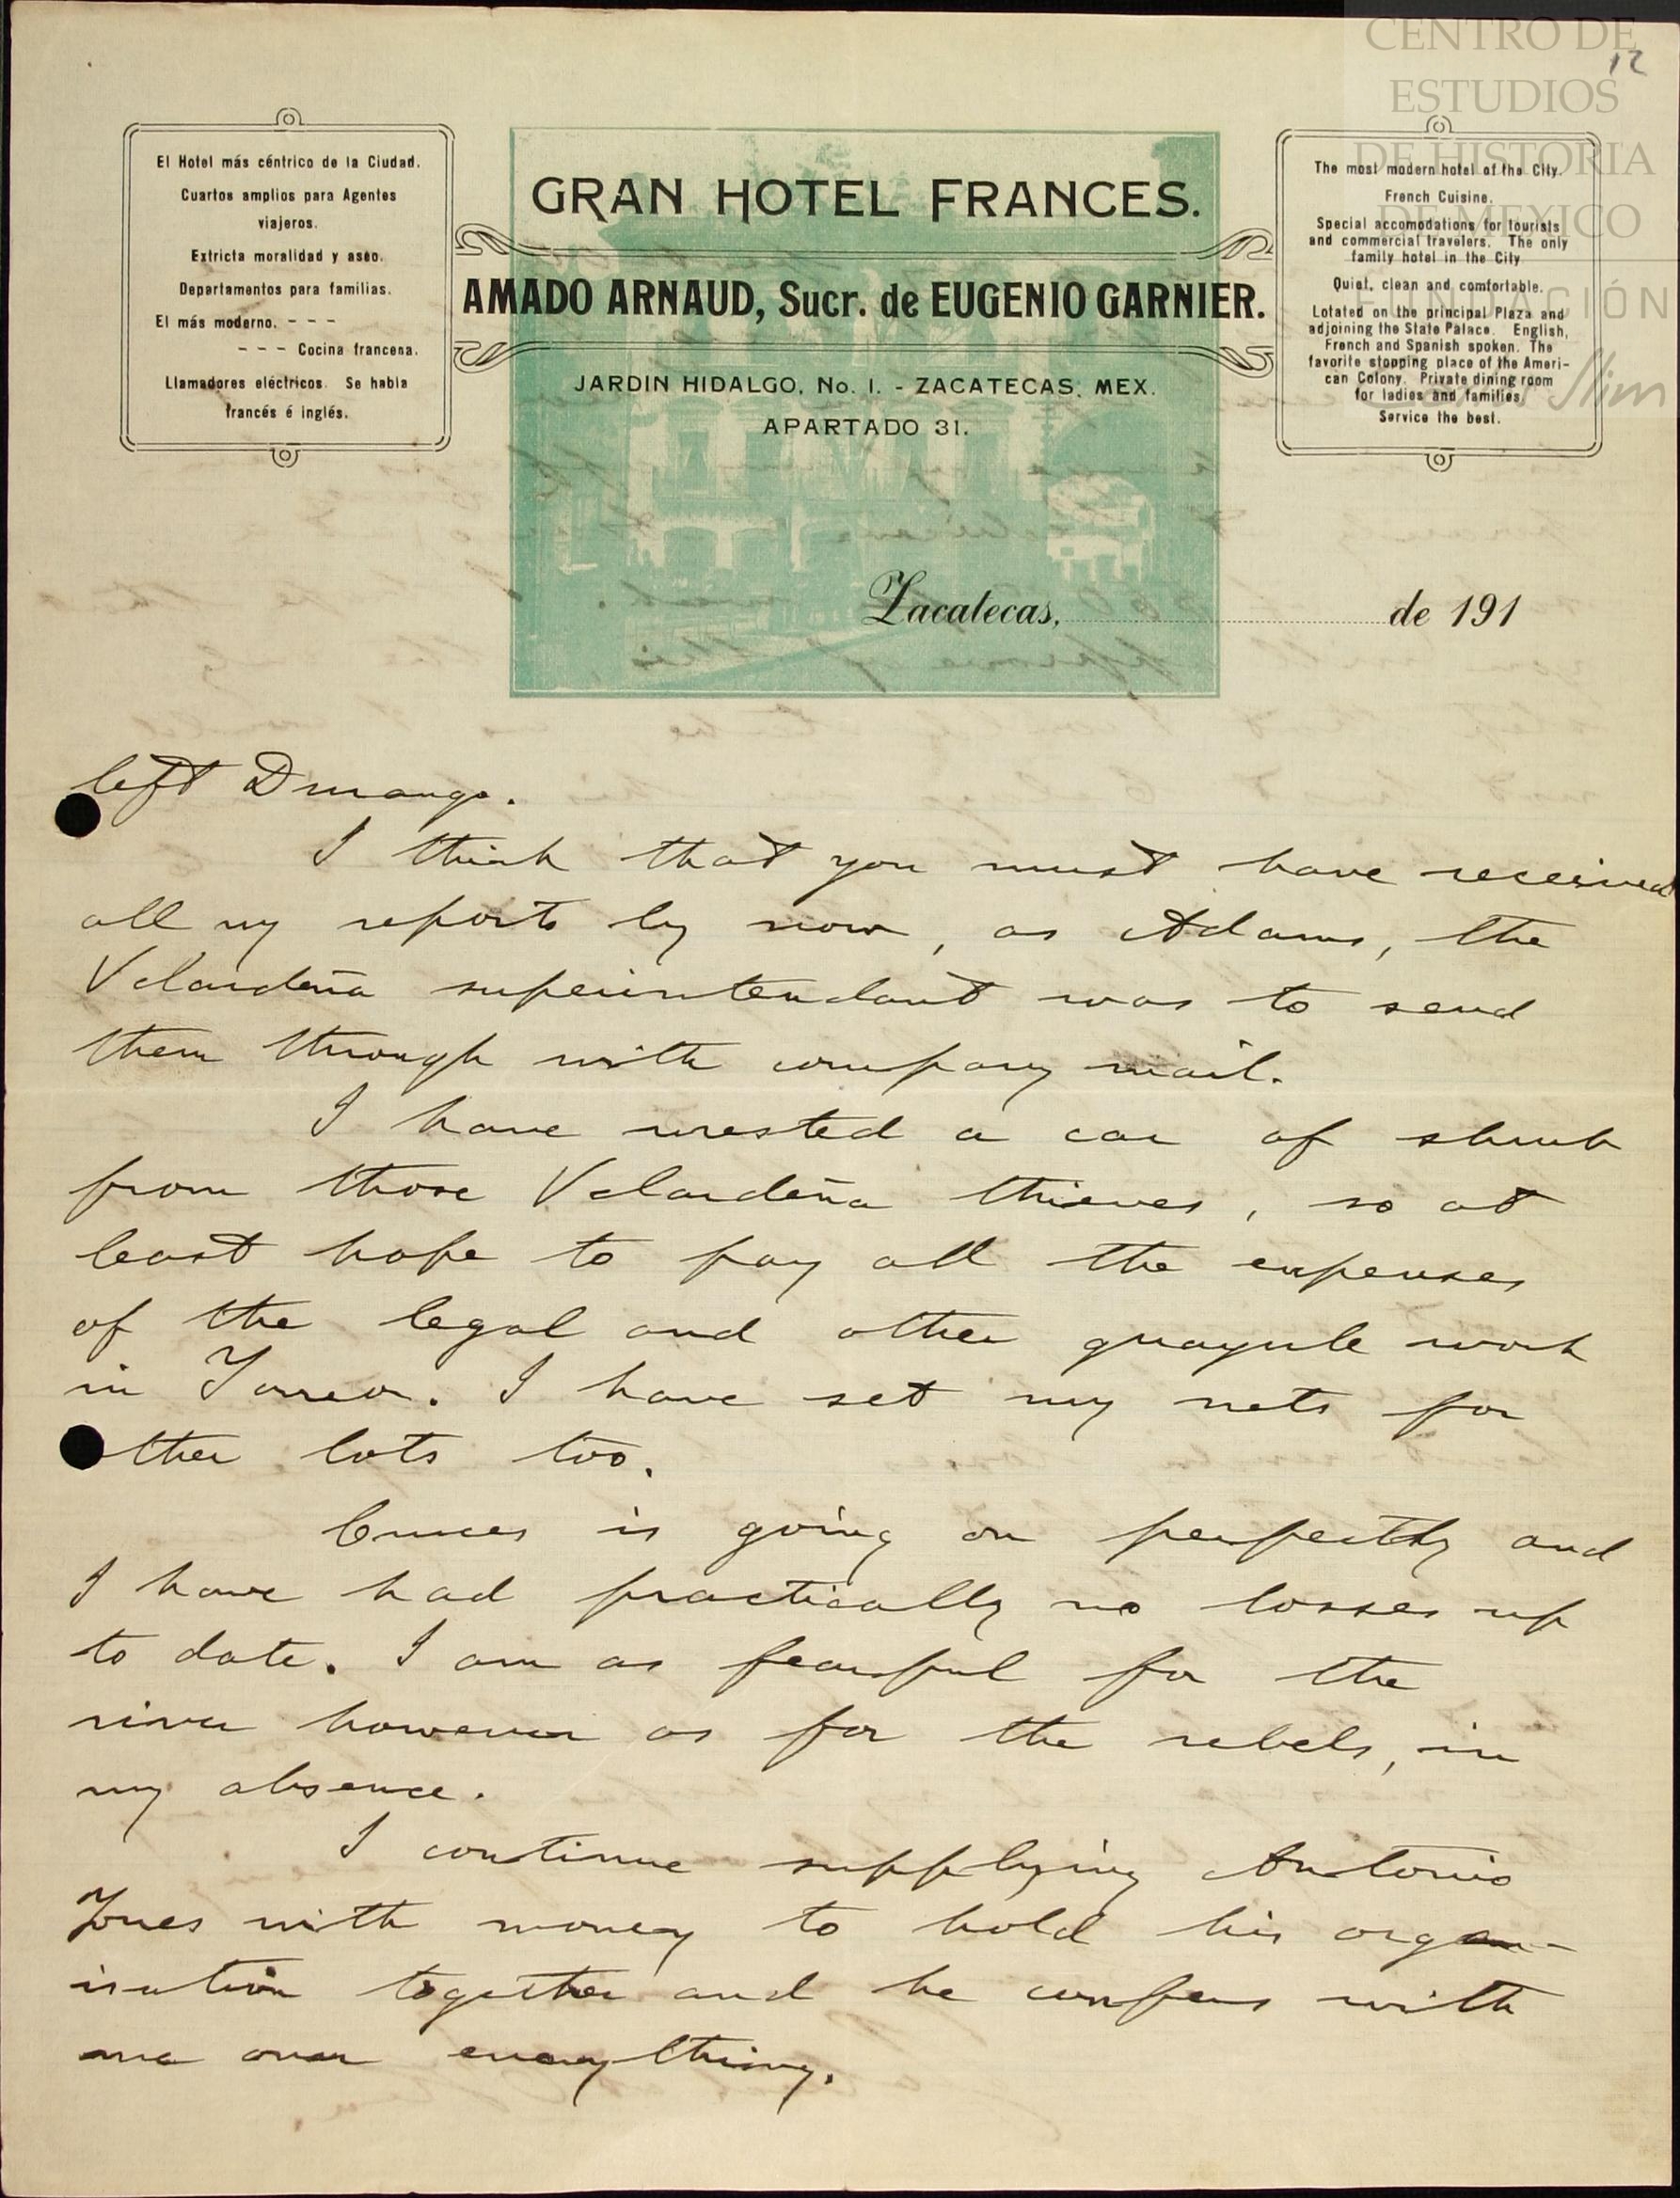 CENTRO DE
ESTUDIOS
DE HISTORIA
DE MEXICO
FUNDACIÓN
Slim
12
El Hotel más céntrico de la Ciudad.
Cuartos amplios para Agentes
viajeros.
Extricta moralidad y aseo.
Departamentos para familias.
El más moderno. - - -
- - - Cocina francena.
Llamadores eléctricos. Se habla
francés é inglés.
GRAN HOTEL FRANCES.
AMADO ARNAUD, Sucr. de EUGENIO GARNIER.
JARDIN HIDALGO, No. 1. - ZACATECAS, MEX.
APARTADO 31.
The most modern hotel of the City.
French Cuisine.
Special accomodations for tourists
and commercial travelers. The only
family hotel in the City
Quiet, clean and comfortable.
Lotated on the principal Plaza and
adjoining the State Palace. English,
French and Spanish spoken. The
favorite stopping place of the Ameri-
can Colony. Private dining room
for ladies and families.
Service the best.
Zacatecas, de 191
left Durango.
I think that you must have received
all my reports by now, as Adams, the
Velardeña superintendant was to send
them through with company mail.
I have wrested a car of shrub
from those Velardeña thieves, so at
least hope to pay all the expenses
of the legal and other guayule work
in Torreon. I have set my nets for
other lots too.
Cruces is going on perfectly and
I have had practically no losses up
to date. I am as fearful for the
river however as for the rebels, in
my absence.
I continue supplying Antonio
Jones with money to hold his organ-
isation together and he confers with
me over everything.